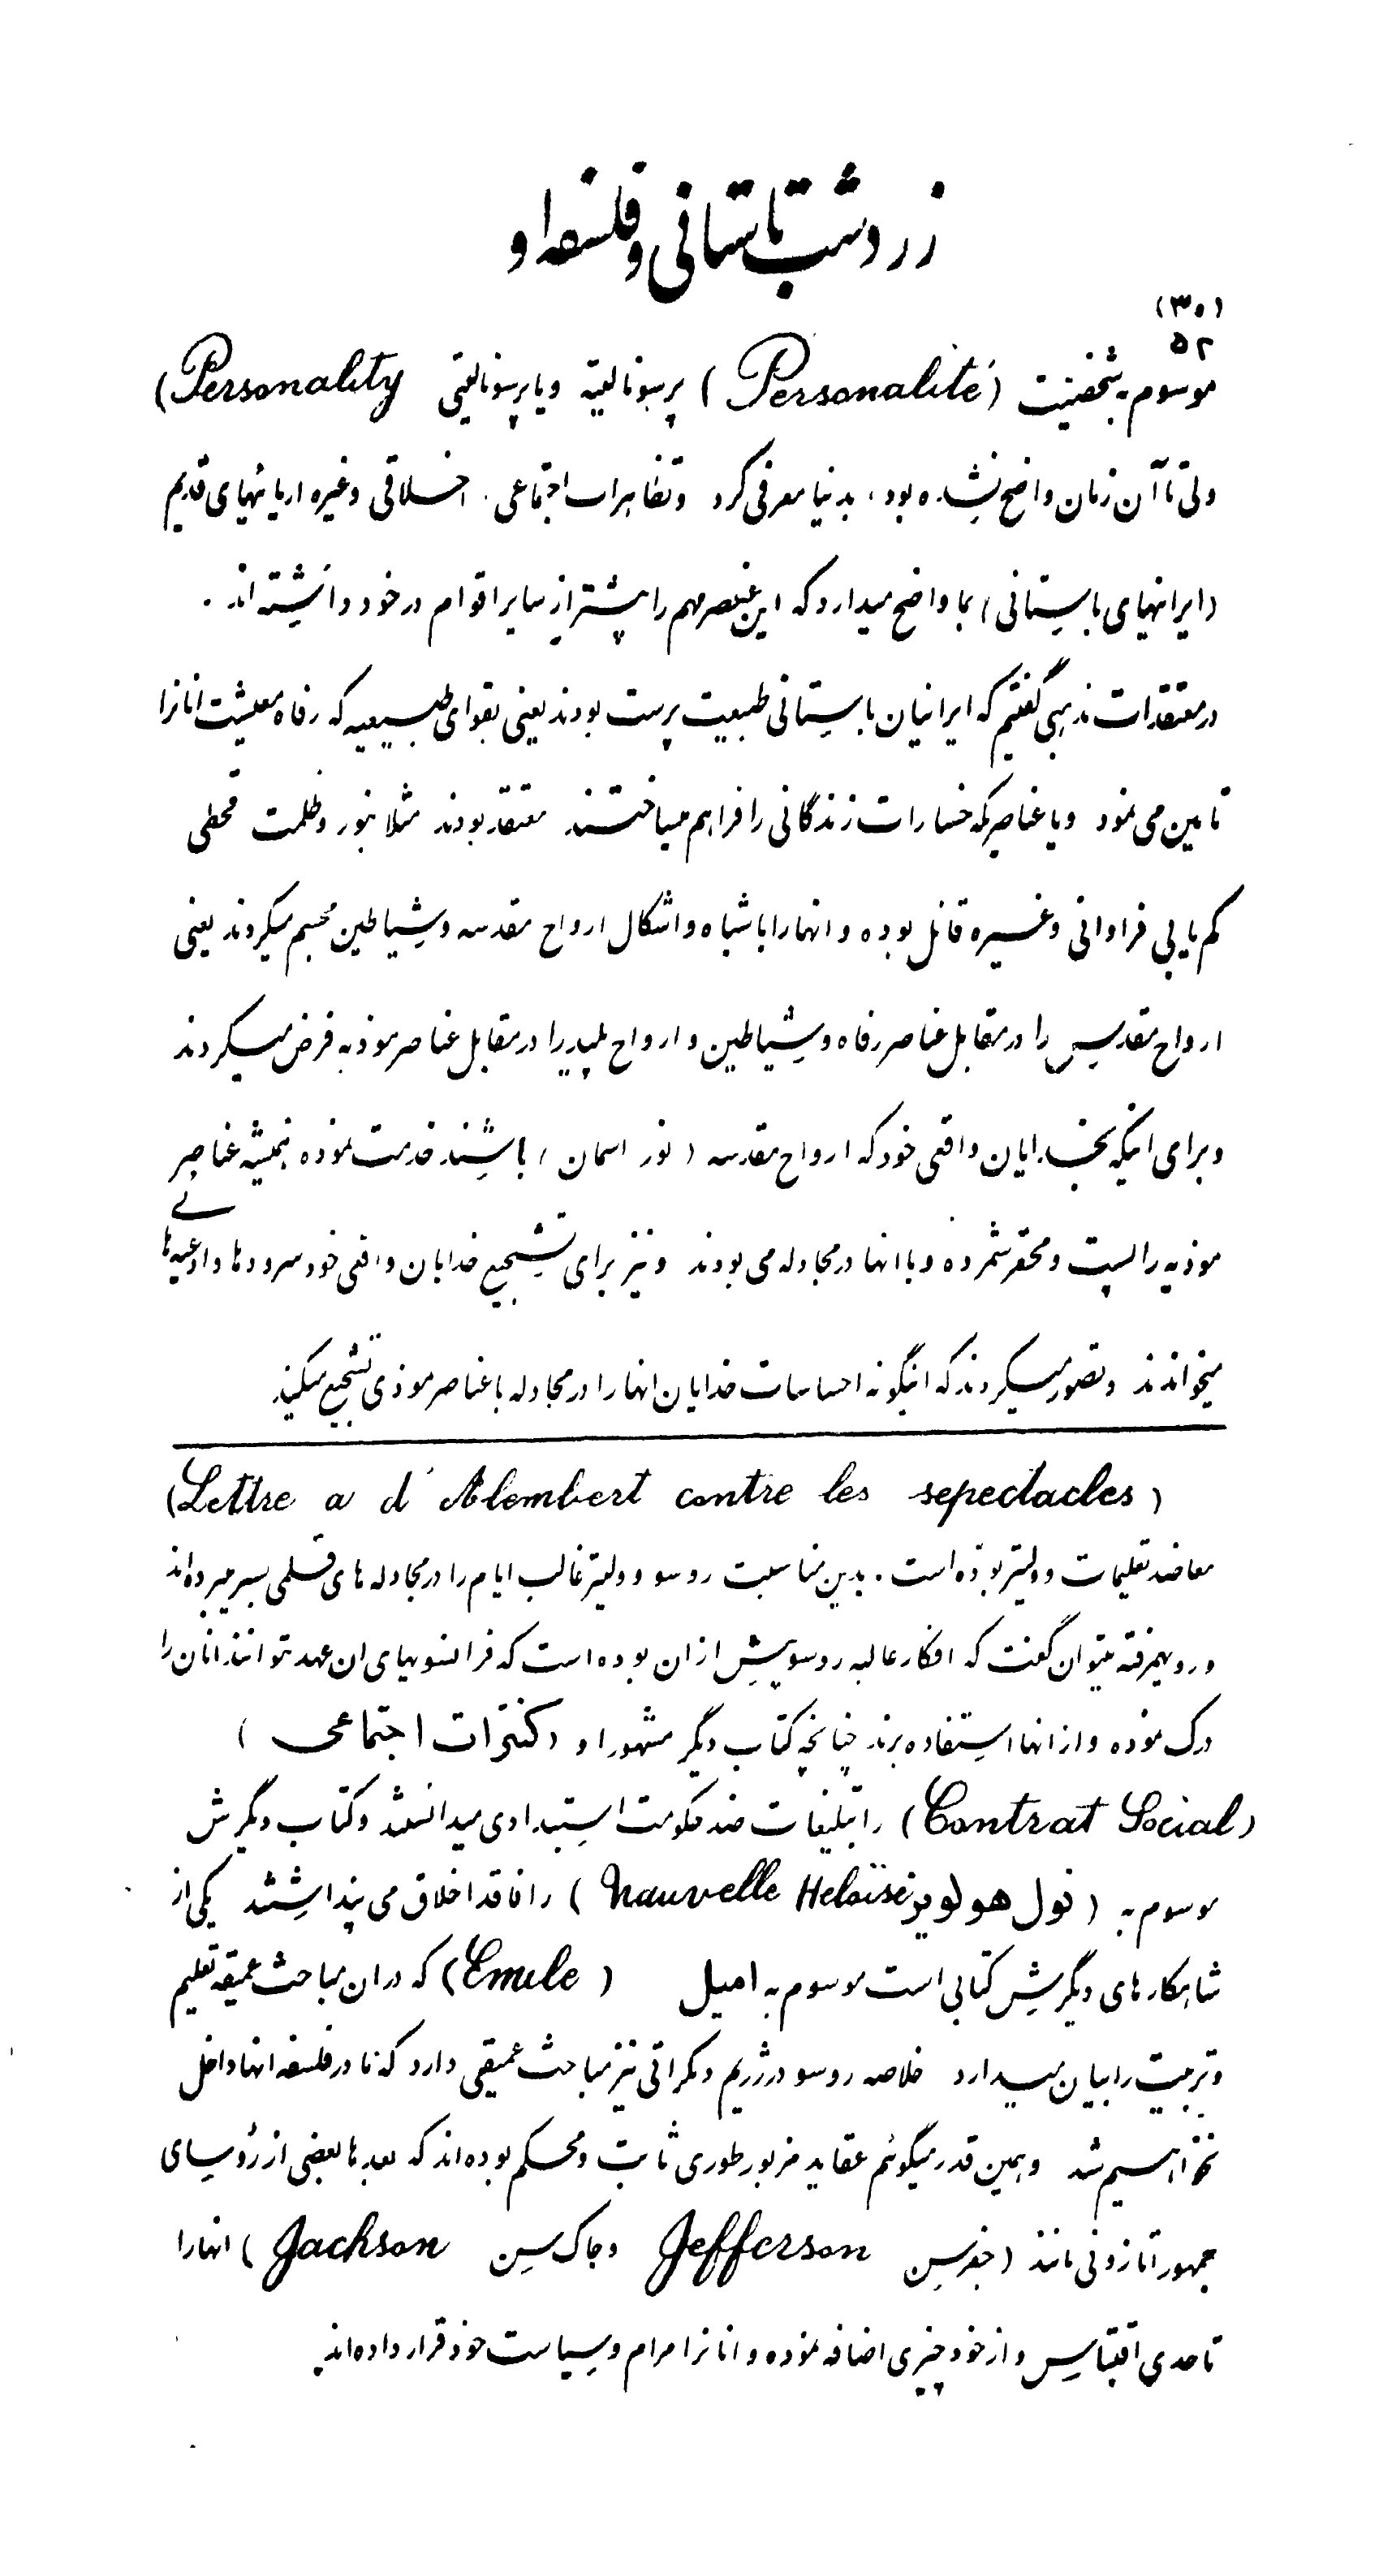 زردشت باستانی و فلسفه او
(۳۰)
۵۲
موسوم به شخصیت (Personalité) پرسونالیته و یا پرسونالیتی (Personality
ولی تا آن زمان واضح نشده بود، بدنیا معرفی کرد و تظاهرات اجتماعی . اخلاقی و غیره اریائیهای قدیم
(ایرانیهای باستانی) بما واضح میدارد که این عنصر مهم را پیشتر از سایر اقوام در خود داشته اند .
در معتقدات مذهبی گفتیم که ایرانیان باستانی طبیعت پرست بودند یعنی بقوای طبیعیه که رفاه معیشت انانرا
تامین می نمود و یا عناصریکه خسارات زندگانی را فراهم میساختند معتقد بودند مثلا بنور و ظلمت قحطی
کم یابی فراوانی و غیره قائل بوده و انهارا باشباه و اشکال ارواح مقدسه و شیاطین مجسم میکردند یعنی
ارواح مقدس را در مقابل عناصر رفاه و شیاطین و ارواح پلید را در مقابل عناصر موذیه فرض میکردند
و برای اینکه بخدایان واقعی خود که ارواح مقدسه (نور اسمان) باشند خدمت نموده همیشه عناصر
موذیه را پست و محقر شمرده و با انها در مجادله می بودند و نیز برای تشجیع خدایان واقعی خود سرودها و ادعیه ها ئے
میخواندند و تصور میکردند که اینگونه احساسات خدایان انها را در مجادله با عناصر موذی تشجیع میکند
(Lettre a d'Alembert contre les sepectacles)
معاضد تعلیمات وولتیر بوده است . بدین مناسبت روسو و ولتیر غالب ایام را در مجادله های قلمی بسر میبرده اند
و رویهمرفته میتوان گفت که افکار عالیه روسو پیش از ان بوده است که فرانسویهای ان عهد بتوانند انان را
درک نموده و از انها استفاده برند چنانچه کتاب دیگر مشهور او (کنترات اجتماعی)
(Contrat Social) را تبلیغات ضد حکومت استبدادی میدانستند و کتاب دیگرش
موسوم به (نول هولویز Nauvelle Heloïse) را فاقد اخلاق می پنداشتند یکی از
شاهکارهای دیگرش کتابی است موسوم به امیل (Emile) که در ان مباحث عمیقه تعلیم
و تربیت را بیان میدارد خلاصه روسو در رژیم دمکراتی نیز مباحث عمیقی دارد که ما در فلسفه انها داخل
نخواهیم شد و همین قدر میگوئیم عقاید مزبور طوری ثابت و محکم بوده اند که بعدها بعضی از رؤسای
جمهور اتازونی مانند (جفرسن Jefferson و جاک سن Jackson) انهارا
تا حدی اقتباس و از خود چیزی اضافه نموده و انانرا مرام و سیاست خود قرار داده اند